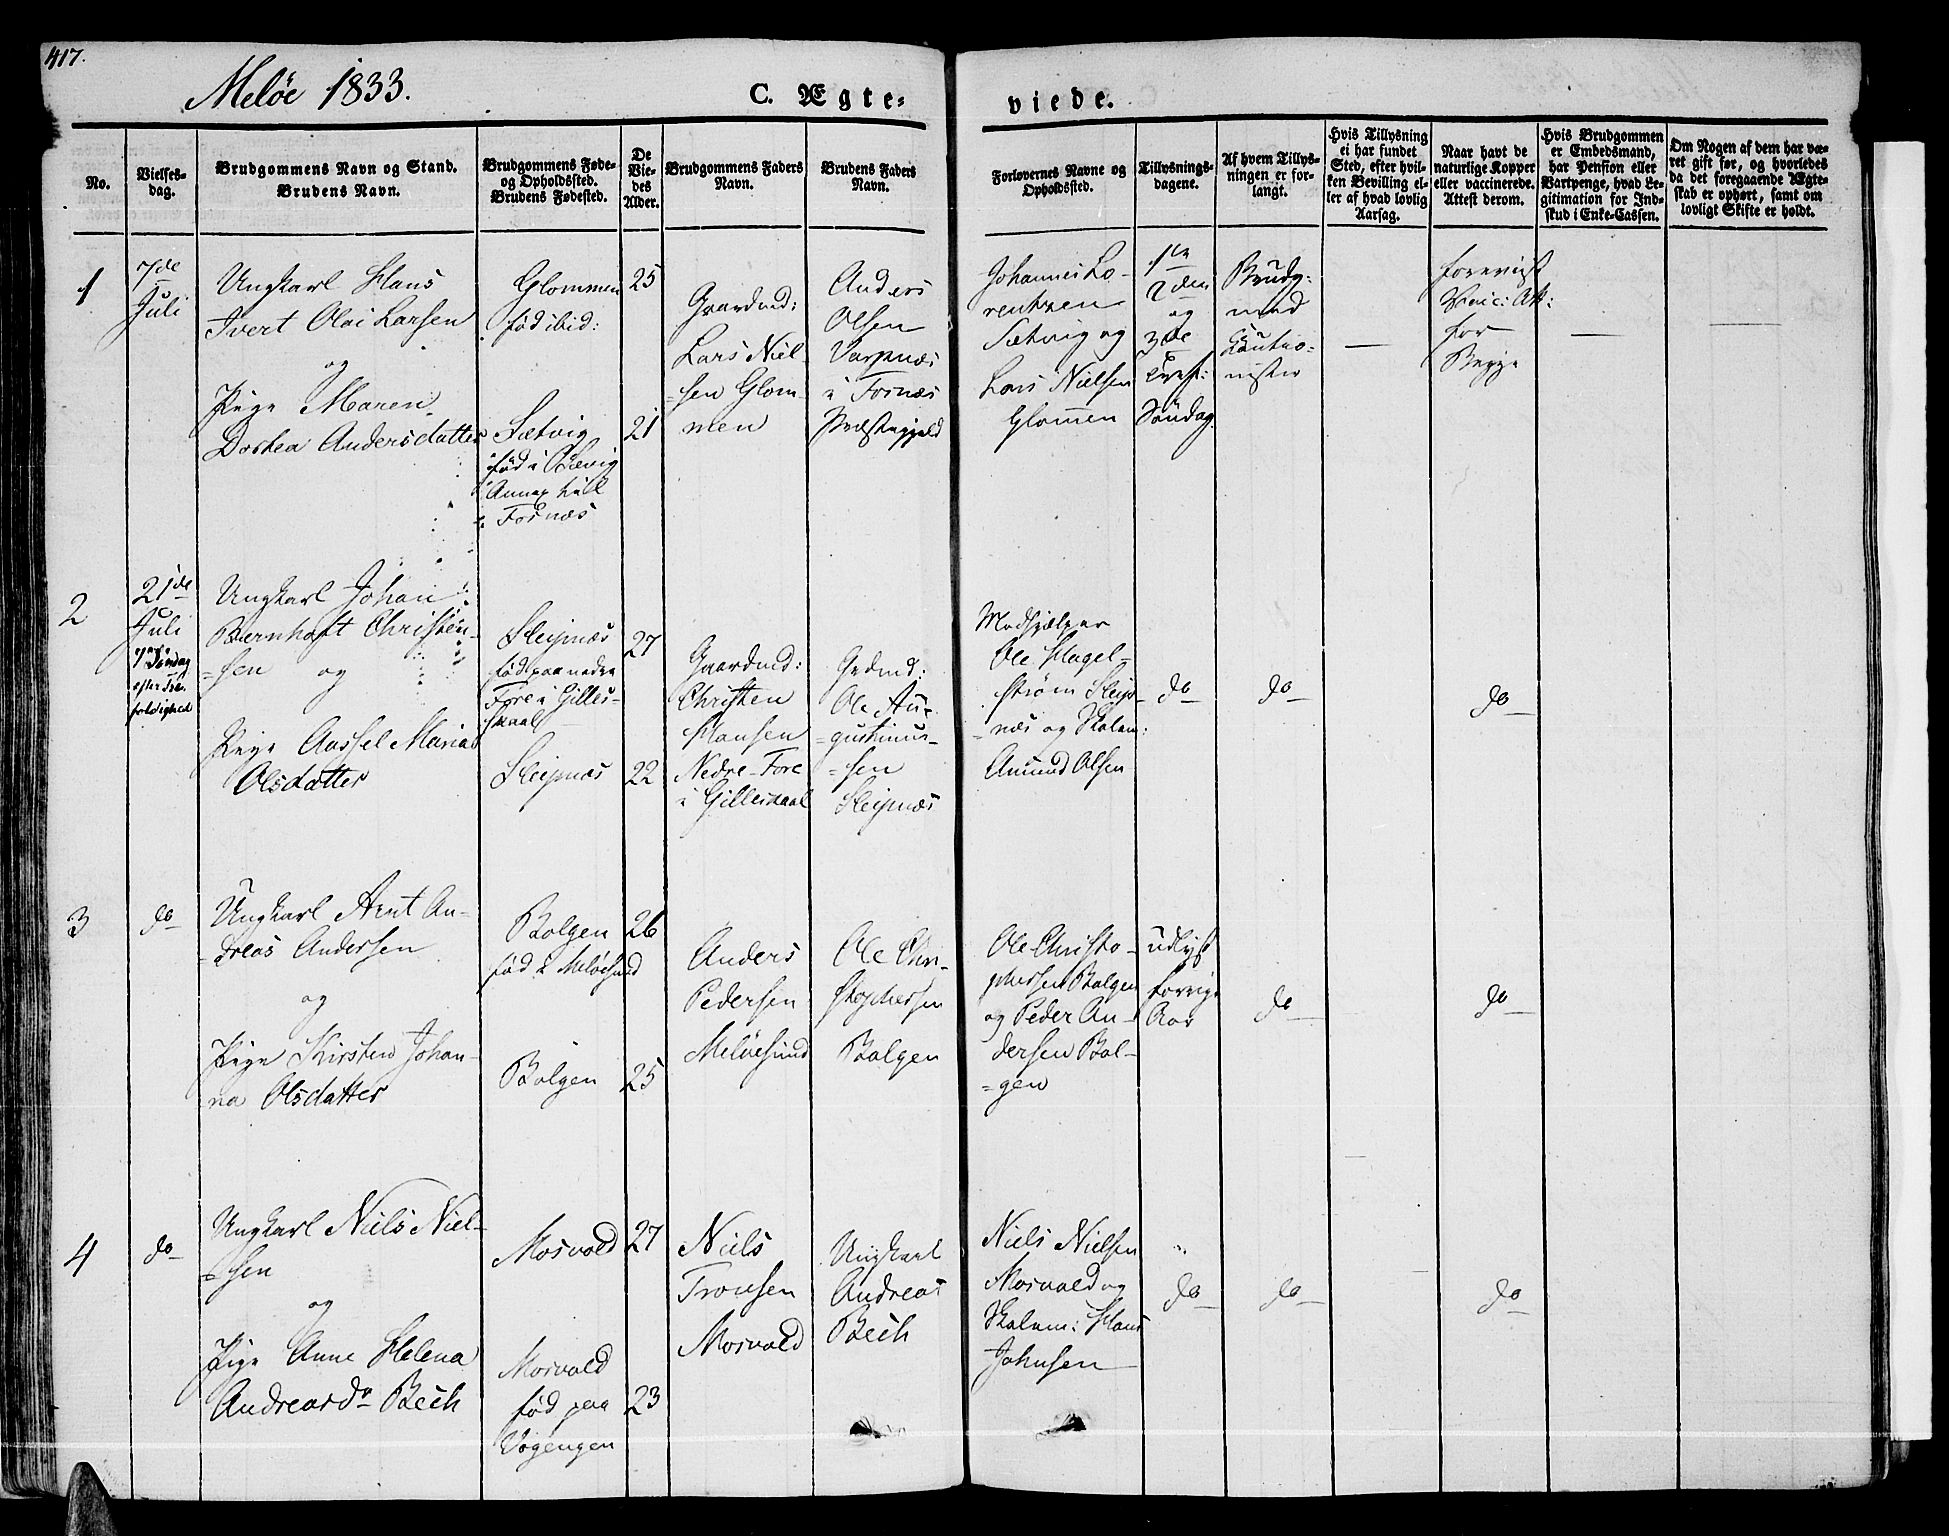 417.
Meløe 1833.
C. Ægte-
viede.
No.
Vielses-
dag.
Brudgommens Navn og Stand.
Brudens Navn.
Brudgommens Føde-
og Opholdsted.
Brudens Fødested.
De
Vie-
des
Alder.
Brudgommens Faders
Navn.
Brudens Faders
Navn.
Forlovernes Navne og
Opholdssted.
Tillysnings-
dagene.
Af hvem Tillys-
ningen er for-
langt.
Hvis Tillysning
ei har fundet
Sted, efter hvil-
ken Bevilling el-
ler af hvad lovlig
Aarsag.
Naar havt de
naturlige Kopper
eller vaccinerede.
Attest derom.
Hvis Brudgommen
er Embedsmand,
har Pension eller
Vartpenge, hvad Le-
gitimation for Ind-
skud i Enke-Cassen.
Om Nogen af dem har væ-
ret gift før, og hvorledes
da det foregaaende Ægte-
skab er ophørt, samt om
lovligt Skifte er holdt.
1
7de
Juli
Ungkarl Hans
Ivert Olai Larsen
og
Pige Maren
Dorthea Andersdatter
Glommen
fød ibid:
Sætvig
fød i Bævig
Annex til
Fornæs
25
21
Gaardmd:
Lars Niel-
sen Glom-
men
Anders
Olsen
Varpnæs
i Fornæs
Præstegjeld
Johannes Lo-
rentzen
Sætvig og
Lars Nielsen
Glomen
1te
2den
og
3de
Tref:
Søndag
Brudg:
med
Cautio-
nister
foreviist
Vacc: Att:
for
Begge
2
21de
Juli
7de Søndag
efter Tre-
foldighed
Ungkarl Johan
Bernhoft Christen-
sen og
Pige Aassel Maria
Olsdatter
Sleipnæs
fød paa nedre
Fore i Gilles-
kaal
Sleipnæs
27
22
Gaardmd:
Christen
Hansen
Nedre-Fore
i Gilleskaal
Grdmd:
Ole Au-
gustinus-
sen
Sleipnæs
Medhjælper
Ole Hagel-
strøm Sleip-
næs og Skolem:
Amund Olsen
do
do
do
3
do
Ungkarl Arnt An-
dreas Andersen
og
Pige Kirsten Johan-
na Olsdatter
Bolgen
fød i Meløesund
Bolgen
26
25
Anders
Pedersen
Meløesund
Ole Chri-
stophersen
Bolgen
Ole Christo-
phersen Bolgen
og Peder An-
dersen Bol-
gen
udlyst
forrige
Aar
do
do
4
do
Ungkarl Niels Niel-
sen
og
Pige Anne Helena
Andreasdr Bech
Mosvold
Mosvold
fød paa
Vogengen
27
23
Niels
Tronsen
Mosvold
Ungkarl
Andreas
Bech
Niels Nielsen
Mosvold og
Skolem: Hans
Johnsen
do
do
do